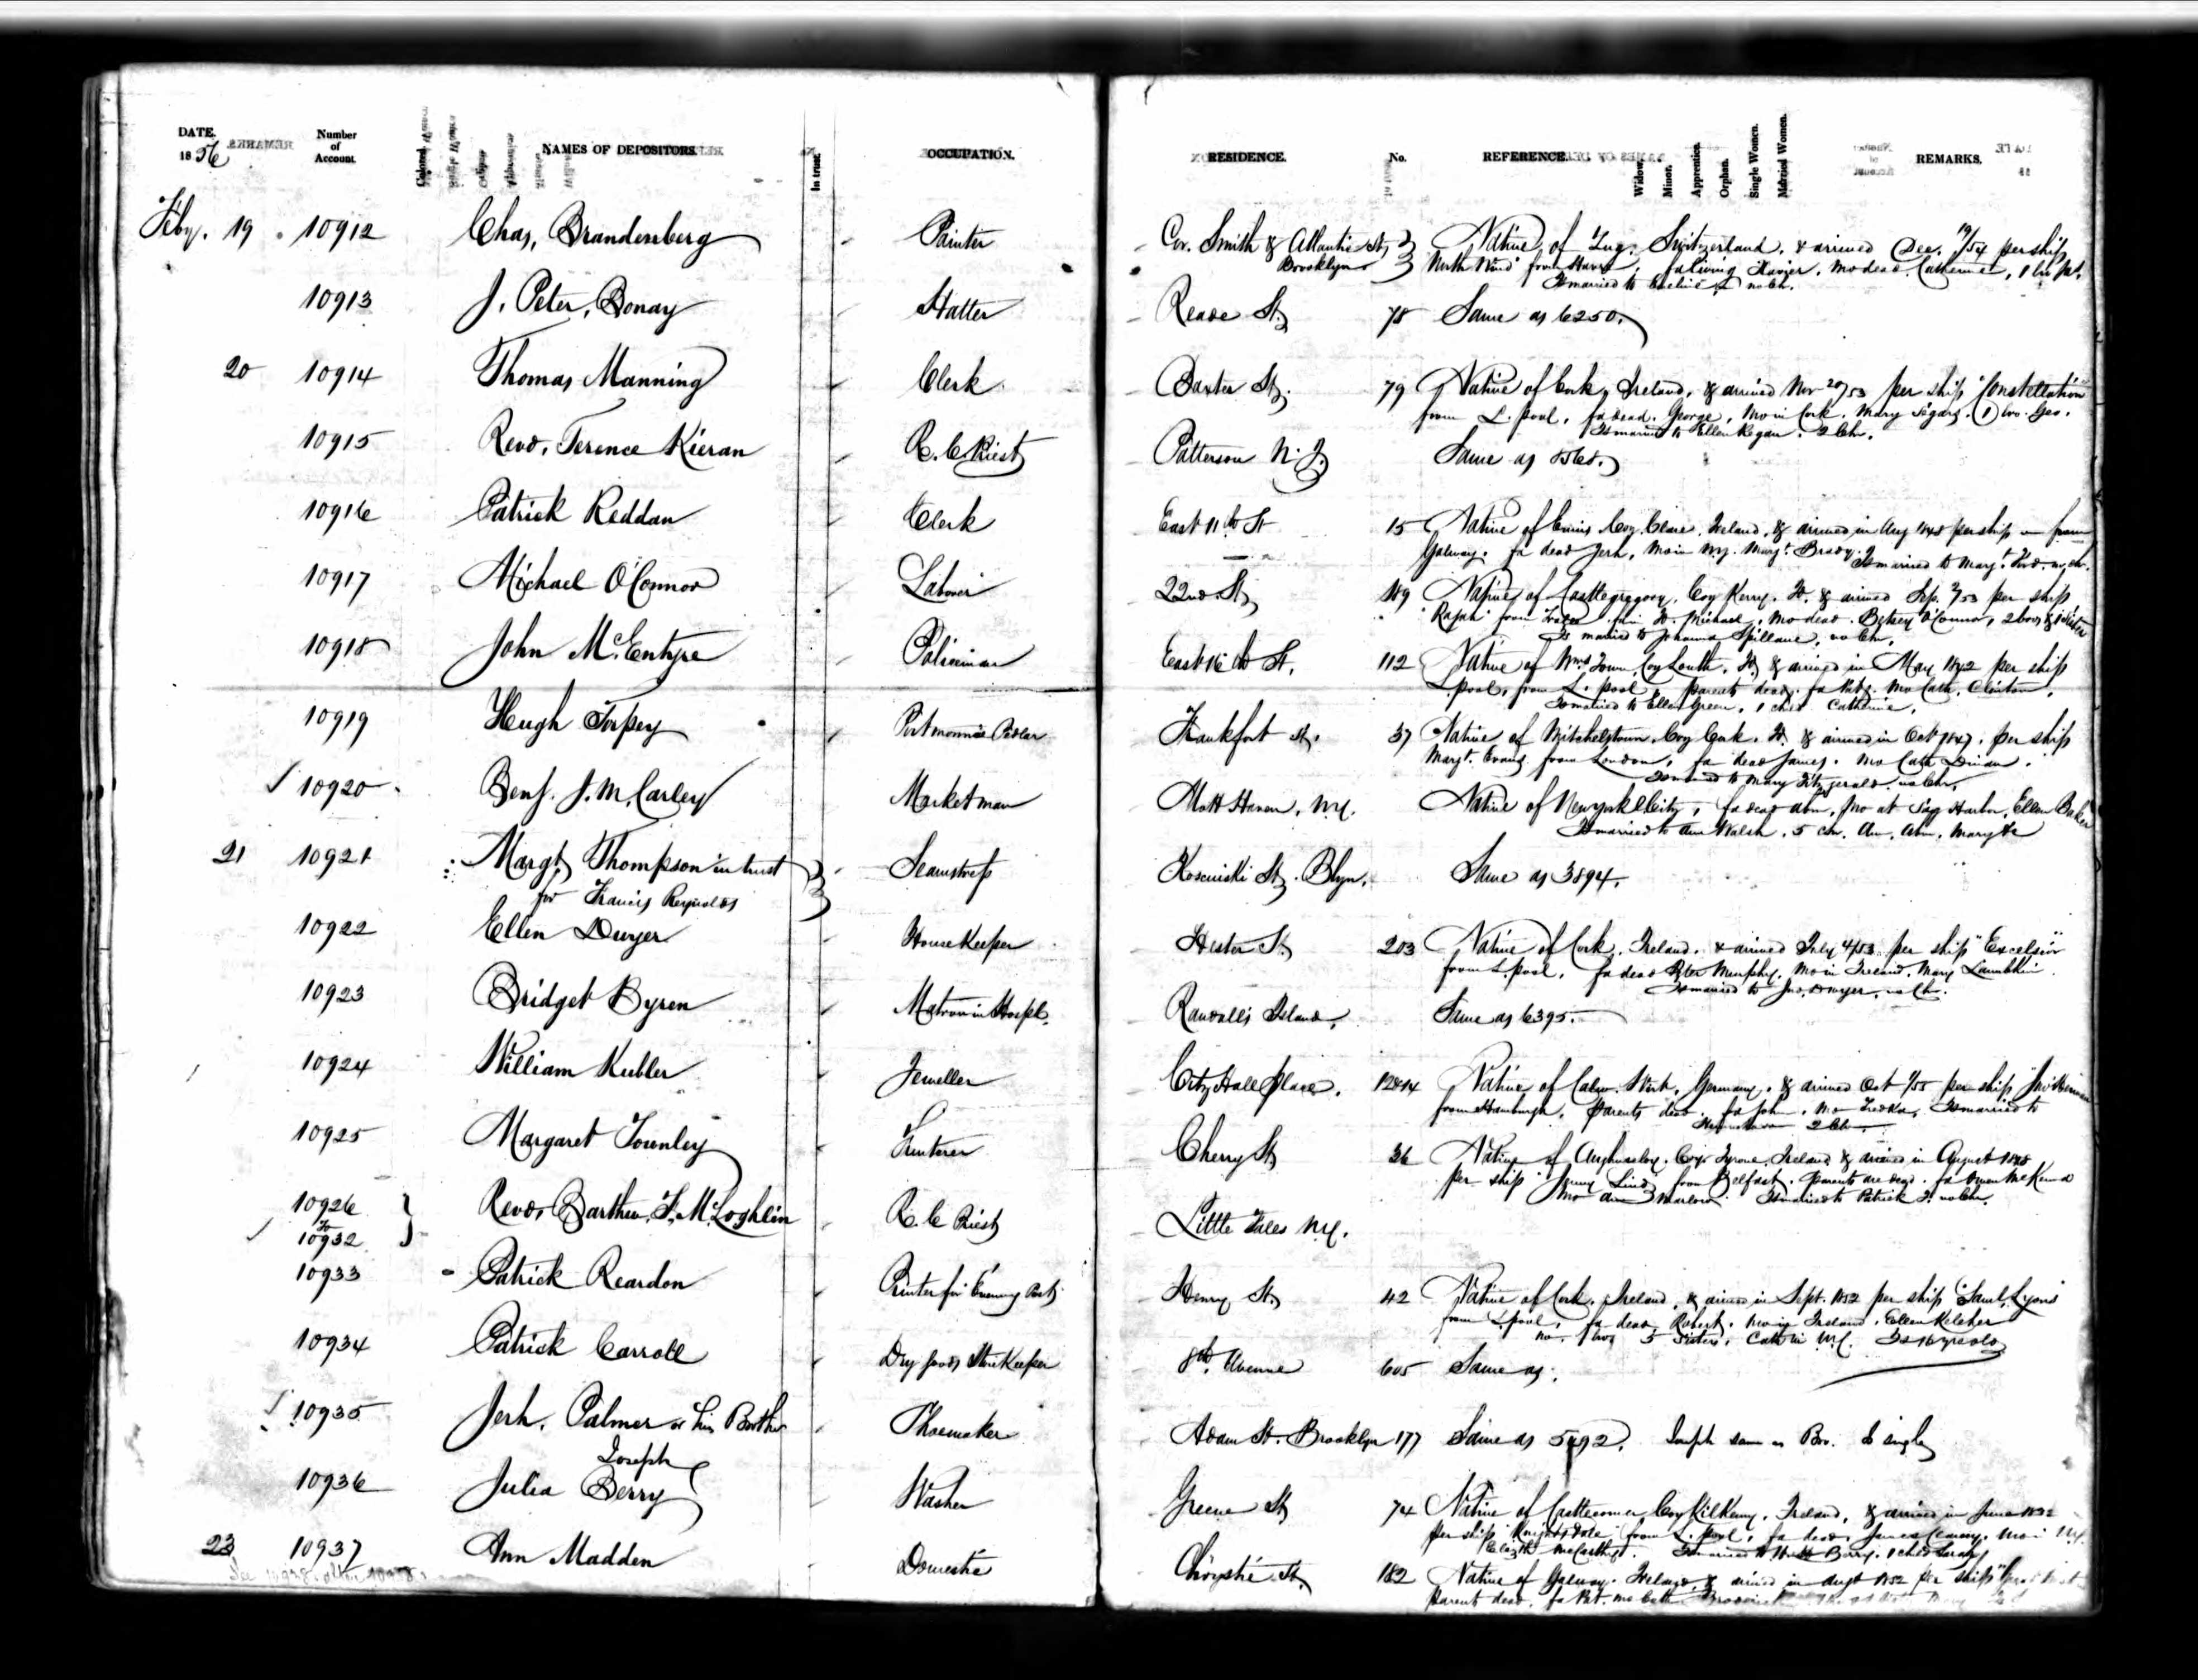 DATE. Number of Account. NAMES OF DEPOSITORS. In trust. OCCUPATION. RESIDENCE. No. REFERENCE. Widow. Minor. Apprentice. Orphan. Single Women. Married Women. REMARKS.
1856
Feby. 19 10912 Chas, Brandenberg Painter Cor. Smith & Atlantic St, Brooklyn Native of Zug. Switzerland. & arrived Dec. 19/54 per ship
North Wind from Havre, fa living Xavier. mo dead. Catherine, 1
Is married to no Chr.
10913 J. Peter, Bonay Hatter Reade St. 78 Same as 6250.
20 10914 Thomas Manning Clerk Baxter St. 79 Native of Cork, Ireland, & arrived Nov 20/53 per ship "Constellation"
from L. pool, fa dead. George, Mo in Cork. Mary 1 bro. Geo.
Is married to Ellen Regan. 2 Chr.
10915 Revd. Terence Kieran R. C. Priest Patterson N. J. Same as 8568.
10916 Patrick Reddan Clerk East 11th St 15 Native of Ennis Coy Clare. Ireland, & arrived in Aug 1848 per ship — from
Galway. fa dead Jerh, Mo in N.Y. Margt. Brady. Is married to Margt. Ford. no chr.
10917 Michael O'Connor Laborer 22nd St, 109 Native of Castlegregory, Coy Kerry. Id. & arrived Sep. 7/53 per ship
"Rajah" from Tralee fa in Id. Michael, Mo dead. Betsey O'Connor, 2 bros & 1 sister
Is married to Johanna Spillane, no Chr.
10918 John McEntyre Policeman East 16th St. 112 Native of Wms Town, Coy Louth, Id, & arrived in May 1842 per ship
L. pool, from L. pool, parents dead. fa Pat. Mo Cath. Clinton,
Is married to Ellen Green, 1 child Catherine,
10919 Hugh Torpey Portmonnie Pedlar Frankfort St. 37 Native of Mitchelstown, Coy Cork. Id. & arrived in Oct 1847. per ship
Margt. Evans from London, fa dead James. mo Cath Dinan.
Is married to Mary Fitzgerald. no Chr,
10920 Benj. J. M. Carley Marketman Mott Haven, N.Y. Native of New york City, fa dead Abm, Mo at Sag Harbor, Ellen Baker
Is married to Ann Walsh, 5 chr. Ann, Abm, Mary &c
21 10921 Margt, Thompson in trust Seamstress Kosciuski St. Blyn. Same as 3894.
for Francis Reynolds
10922 Ellen Dwyer House Keeper Hester St. 203 Native of Cork, Ireland, & arrived July 4/53 per ship "Excelsior"
from L. pool, fa dead Peter Murphy, Mo in Ireland, Mary Lambkin
Is married to Jno, Dwyer, no Chr.
10923 Bridget Byren Matron in Hospl. Randalls Island, Same as 6395.
10924 William Kubler Jeweller City Hall Place. 12&14 Native of Calw. Germany. & arrived Oct 1/55 per ship
from Hamburgh, Parents dead. fa John, mo Is married to
2 Chr
10925 Margaret Townley Fruiterer Cherry St 36 Native of Coy Tyrone, Ireland & arrived in August 1848
per ship Jenny Lind from Belfast. Parents are dead. fa Owen McKenna
Mo Ann Is married to Patrick T. no Chr.
10926 to 10932 Revd. Barthw, F. McLoghlin R. C Priest Little Falls N.Y.
10933 Patrick Reardon Printer for Evening Post Henry St. 42 Native of Cork. Ireland, & arrived in Sept. 1852 per ship "Saml, Lyons"
from L. pool, fa dead Robert. Mo in Ireland, Ellen Kelcher
no. bro 3 Sisters, Cath in N.Y. Is 16 yrs old
10934 Patrick Carroll Dry goods Store Keeper 8th, Avenue 605 Same as.
10935 Jerh. Palmer or his Brother Shoemaker Adam St. Brooklyn 177 Same as 5492. Joseph same as Bro. Is single
Joseph
10936 Julia Berry Washer Greene St 74 Native of Castlecomer Coy Kilkenny. Ireland, & arrived in June
per ship from L. pool, fa dead James mo in N.Y.
Elizth McCarthy. Is married to Berry. 1 child Sarah
23 10937 Ann Madden Domestic Chrystie St. 182 Native of Galway. Ireland, & arrived in Augt 1852 per ship
Parent dead, fa Pat. mo Cath